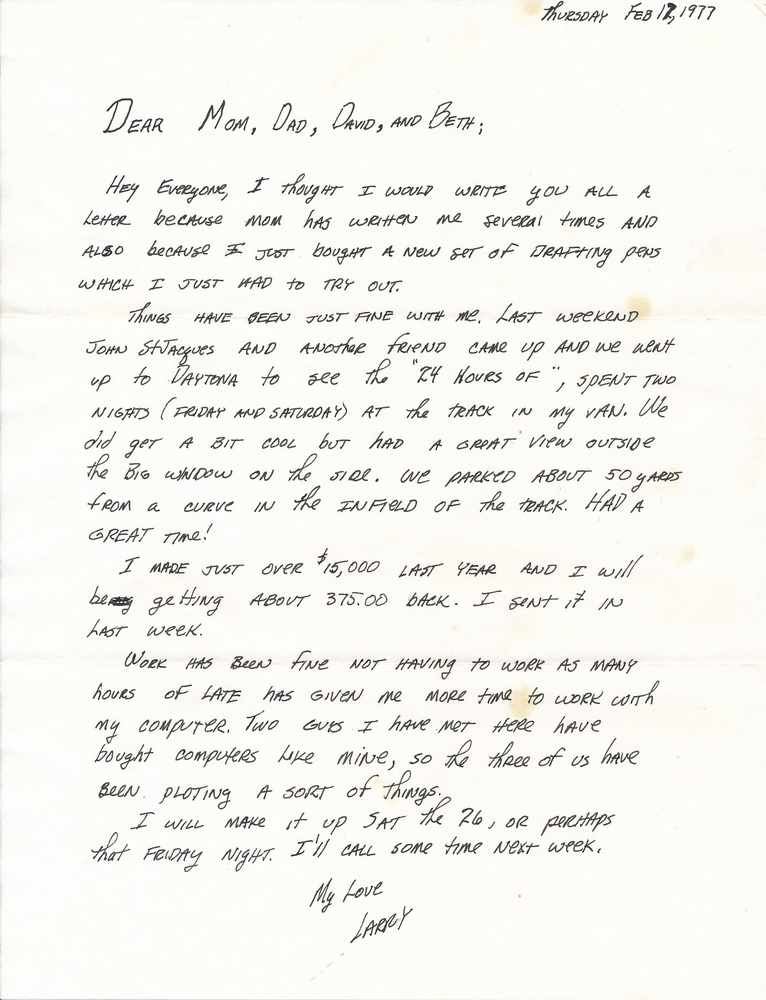 Thursday Feb 17, 1977
Dear Mom, Dad, David, and Beth;
Hey Everyone, I thought I would write you all a
letter because mom has written me several times and
also because I just bought a new set of drafting pens
which I just had to try out.
Things have been just fine with me. Last weekend
John StJacques and another friend came up and we went
up to Daytona to see the "24 Hours of", spent two
nights (Friday and Saturday) at the track in my van. We
did get a bit cool but had a great view outside
the big window on the side. We parked about 50 yards
from a curve in the infield of the track. Had a
great time!
I made just over $15,000 last year and I will
be getting about 375.00 back. I sent it in
last week.
Work has been fine not having to work as many
hours of late has given me more time to work with
my computer. Two guys I have met here have
bought computers like mine, so the three of us have
been ploting a sort of things.
I will make it up Sat the 26, or perhaps
that Friday night. I'll call some time next week.
My Love
Larry